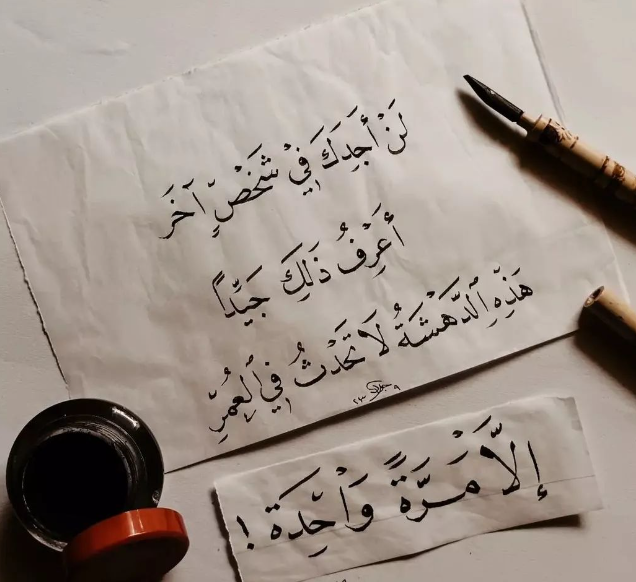 لَنْ أَجِدَكَ فِيْ شَخْصٍ آخَرَ
أَعْرِفُ ذَلِكَ جَيِّدَاً
هَذِهِ الدَّهْشَةُ لَا تَحْدُثُ فِي الْعُمْرِ
إِلَّا مَرَّةً وَاْحِدَة !